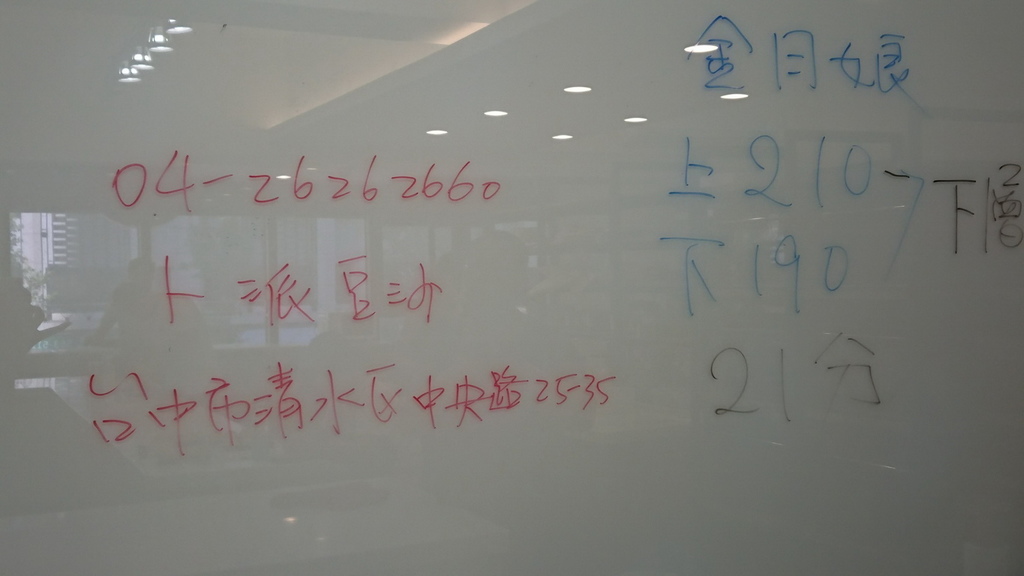 04-26262660
卜派豆沙
台中市清水区中央路25-35
金月娘
上210
下190
21分